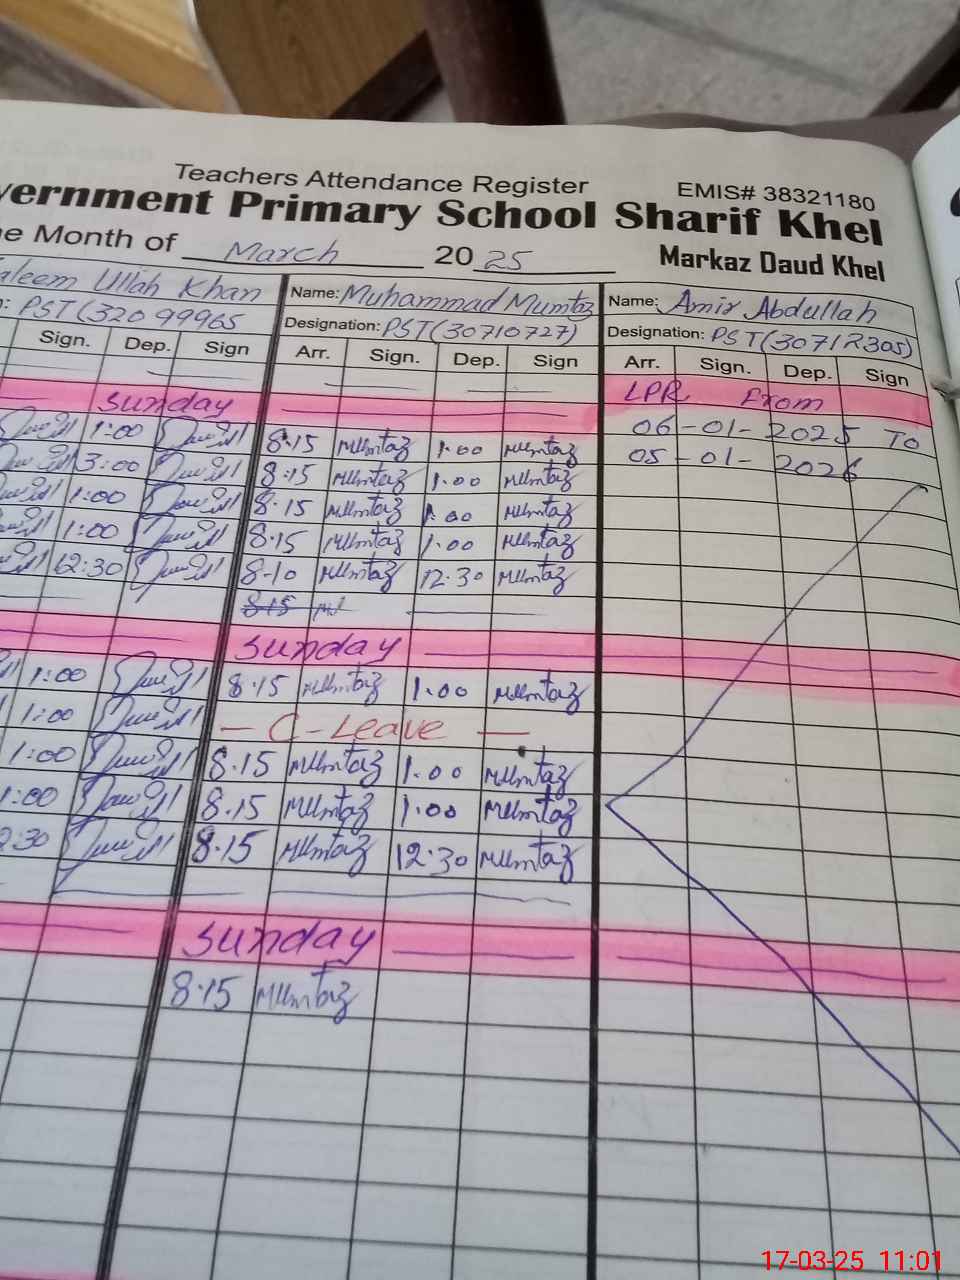 Teachers Attendance Register EMIS# 38321180
vernment Primary School Sharif Khel
he Month of March 2025 Markaz Daud Khel
aleem Ullah Khan Name: Muhammad Mumtaz Name: Amir Abdullah
n: PST(32099965 Designation: PST(30710727) Designation: PST(30712305)
Sign. Dep. Sign Arr. Sign. Dep. Sign Arr. Sign. Dep. Sign
Sunday LPR From
1:00 8.15 Mumtaz 1.00 Mumtaz 06-01-2025 To
3:00 8.15 Mumtaz 1.00 Mumtaz 05-01-2026
1:00 8.15 Mumtaz 1.00 Mumtaz
1:00 8.15 Mumtaz 1.00 Mumtaz
12:30 8-10 Mumtaz 12.30 Mumtaz
8.15
Sunday
1:00 8.15 Mumtaz 1.00 Mumtaz
1:00 - C-Leave -
1:00 8.15 Mumtaz 1.00 Mumtaz
1:00 8.15 Mumtaz 1.00 Mumtaz
2:30 8.15 Mumtaz 12:30 Mumtaz
Sunday
8.15 Mumtaz
17-03-25 11:01